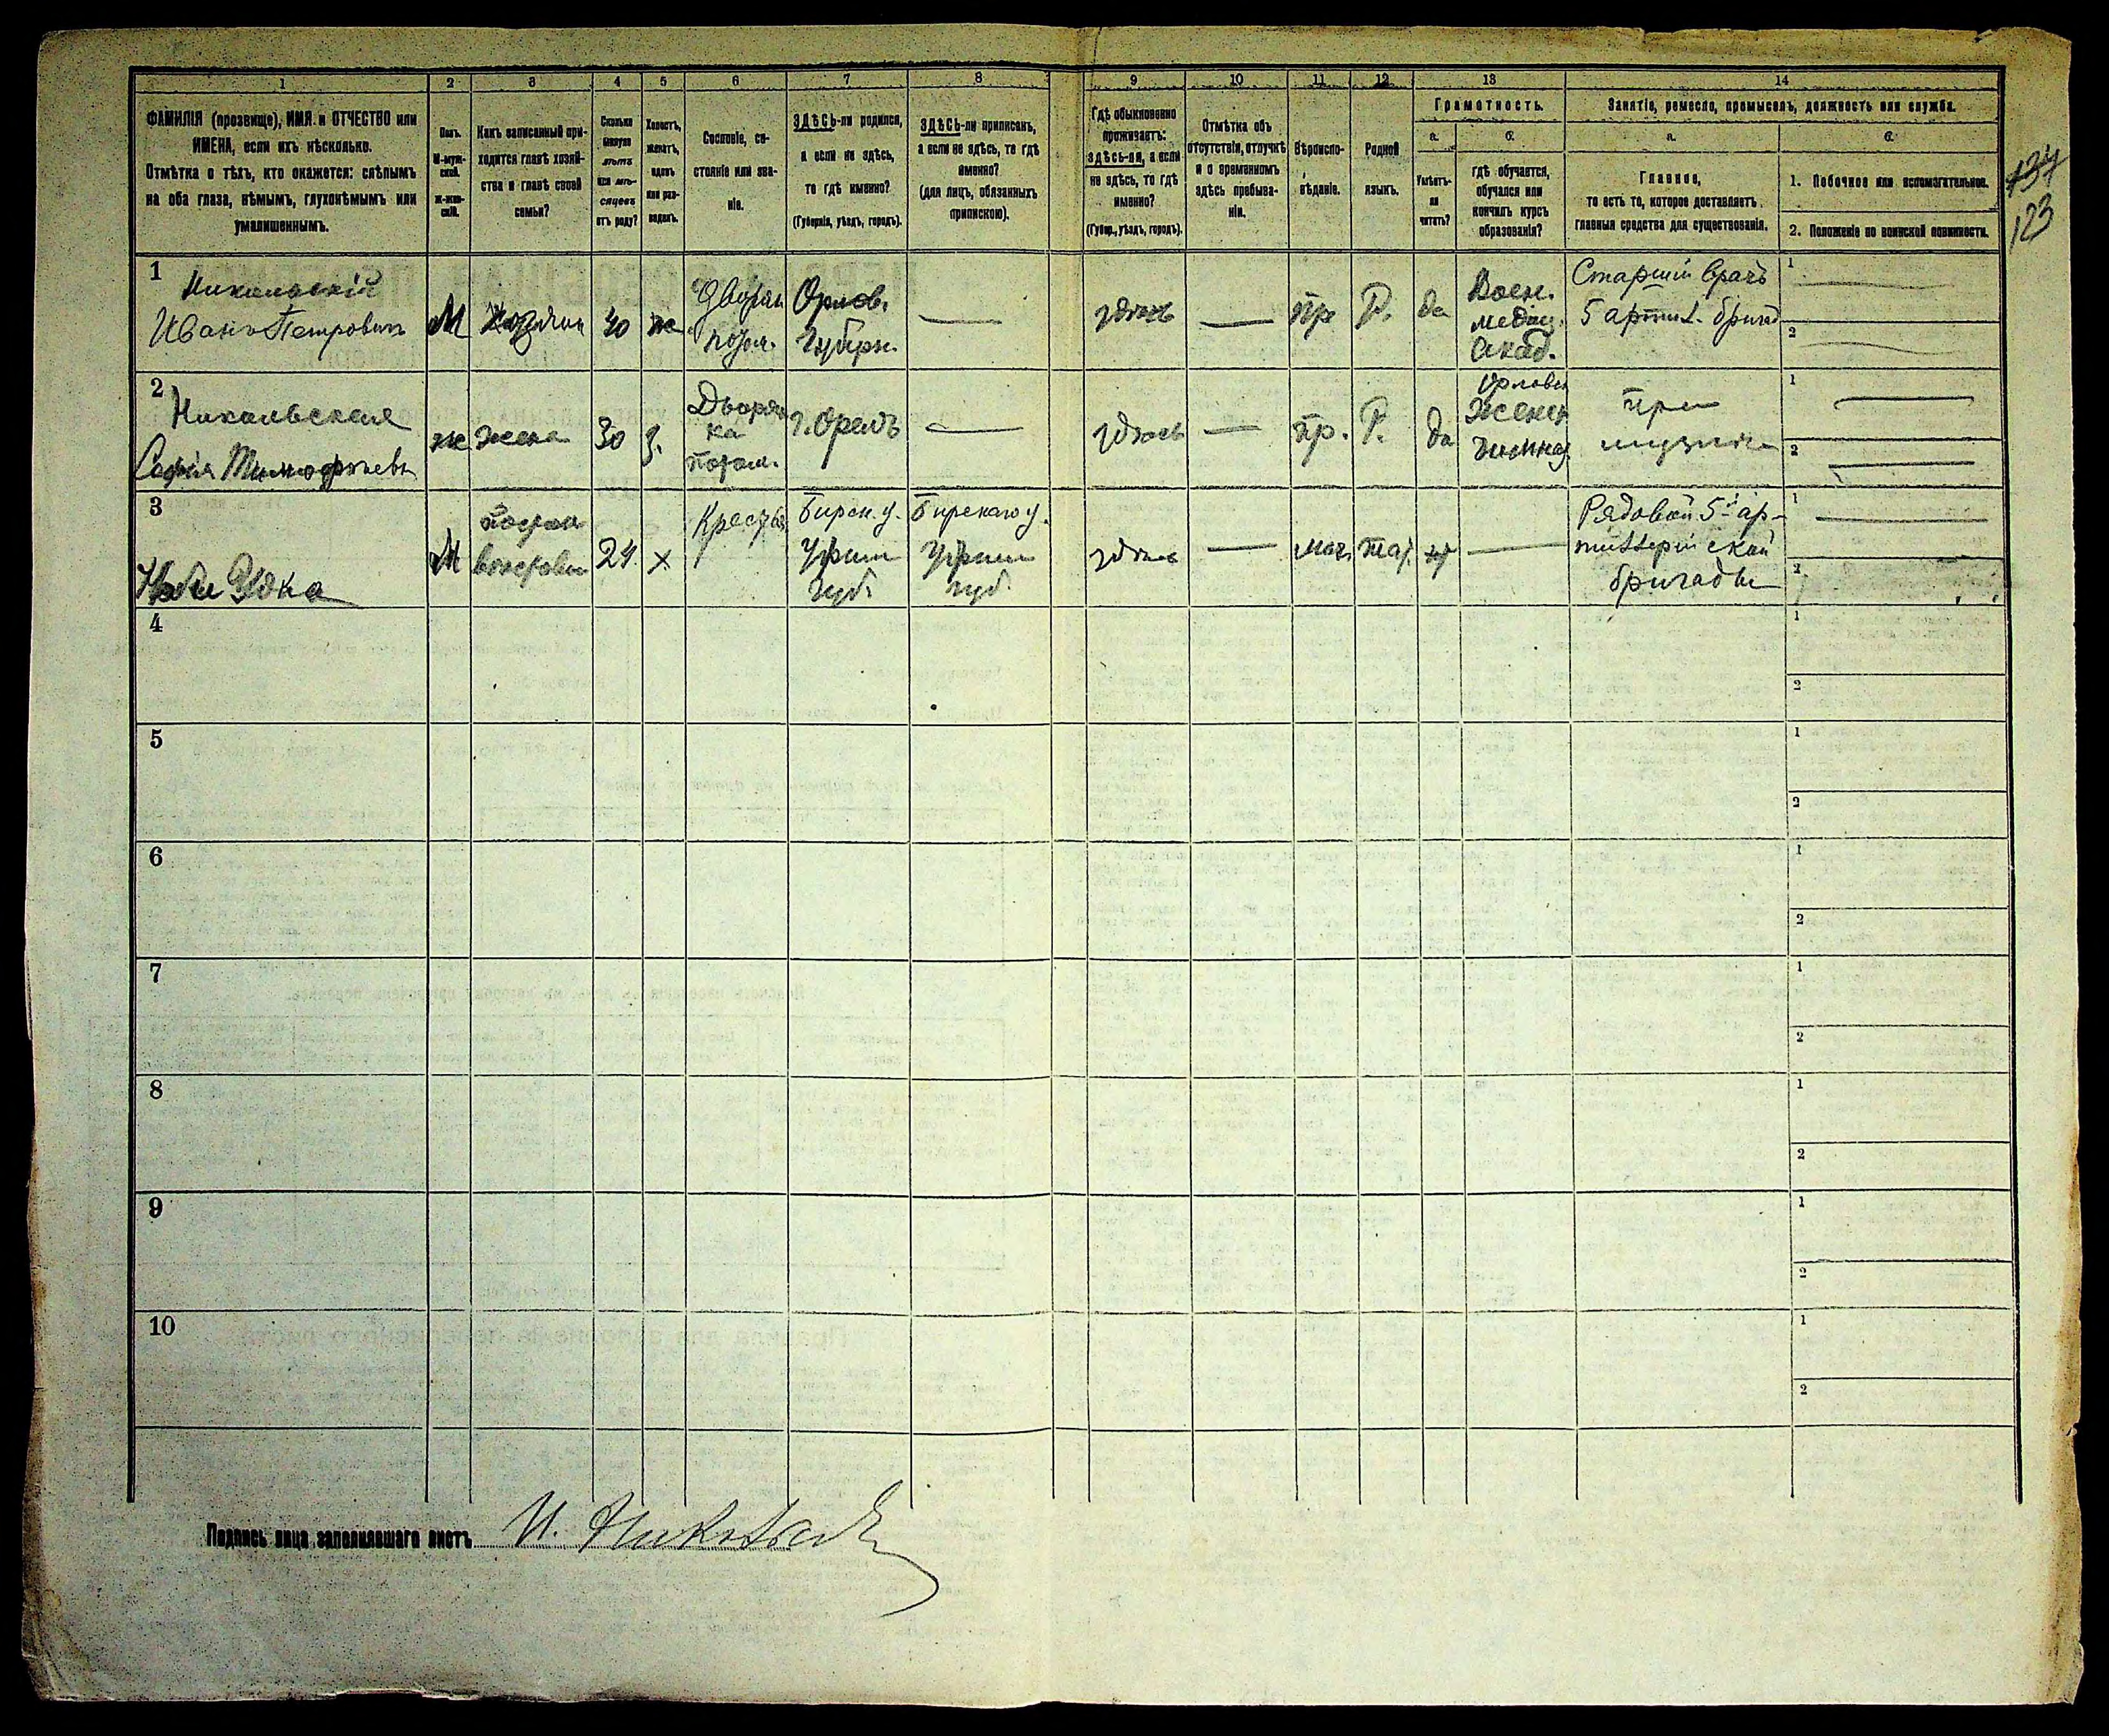 1 2 3 4 5 6 7 8 9 10 11 12 13 14
ФАМИЛІЯ (прозвище), ИМЯ и ОТЧЕСТВО или
ИМЕНА, если ихъ нѣсколько.
Отмѣтка о тѣхъ, кто окажется: слѣпымъ
на оба глаза, нѣмымъ, глухонѣмымъ или
умалишеннымъ.
Полъ.
М-муж-
ской.
ж-жен-
скій.
Какъ записанный при-
ходится главѣ хозяй-
ства и главѣ своей
семьи?
Сколько
минуло
лѣтъ
или мѣ-
сяцевъ
отъ роду?
Холостъ,
женатъ,
вдовъ
или раз-
веденъ.
Сословіе, со-
стояніе или зва-
ніе.
ЗДѢСЬ-ли родился,
а если не здѣсь,
то гдѣ именно?
(Губернія, уѣздъ, городъ).
ЗДѢСЬ-ли приписанъ,
а если не здѣсь, то гдѣ
именно?
(для лицъ, обязанныхъ
припискою).
Гдѣ обыкновенно
проживаетъ:
здѣсь-ли, а если
не здѣсь, то гдѣ
именно?
(Губер., уѣздъ, городъ).
Отмѣтка объ
отсутствіи, отлучкѣ
и о временномъ
здѣсь пребыва-
ніи.
Вѣроиспо-
вѣданіе.
Родной
языкъ.
Грамотность.
а.
Умѣетъ-
ли
читать?
б.
гдѣ обучается,
обучался или
кончилъ курсъ
образованія?
Занятіе, ремесло, промыселъ, должность или служба.
а.
Главное,
то есть то, которое доставляетъ
главныя средства для существованія.
б.
1. Побочное или вспомогательное.
2. Положеніе по воинской повинности.
134
123
1
Никольскій
Иванъ Петровичъ
М
Хозяин
ж
Дворян
потом.
Орлов.
Губерн.
здѣсь
пр
Р.
да
Воен.
медиц.
Акад.
Старшій врачъ
5 артил. бригад
1
2
2
Никольская
Софія Тимофѣевн
ж
жена
30
з.
Дворян
ка
потом.
г. Орелъ
здѣсь
пр.
Р.
да
Орловск
Женск
Гимназ
при
1
2
3
М
24
х
Крестьян
Бирск. у.
Уфим
губ.
Бирскаго у.
Уфим
губ.
здѣсь
маг.
тат.
Рядовой 5й ар-
тиллерійской
бригады
1
2
4
1
2
5
1
2
6
1
2
7
1
2
8
1
2
9
1
2
10
1
2
Подпись лица заполнявшаго листъ И. Никольскій